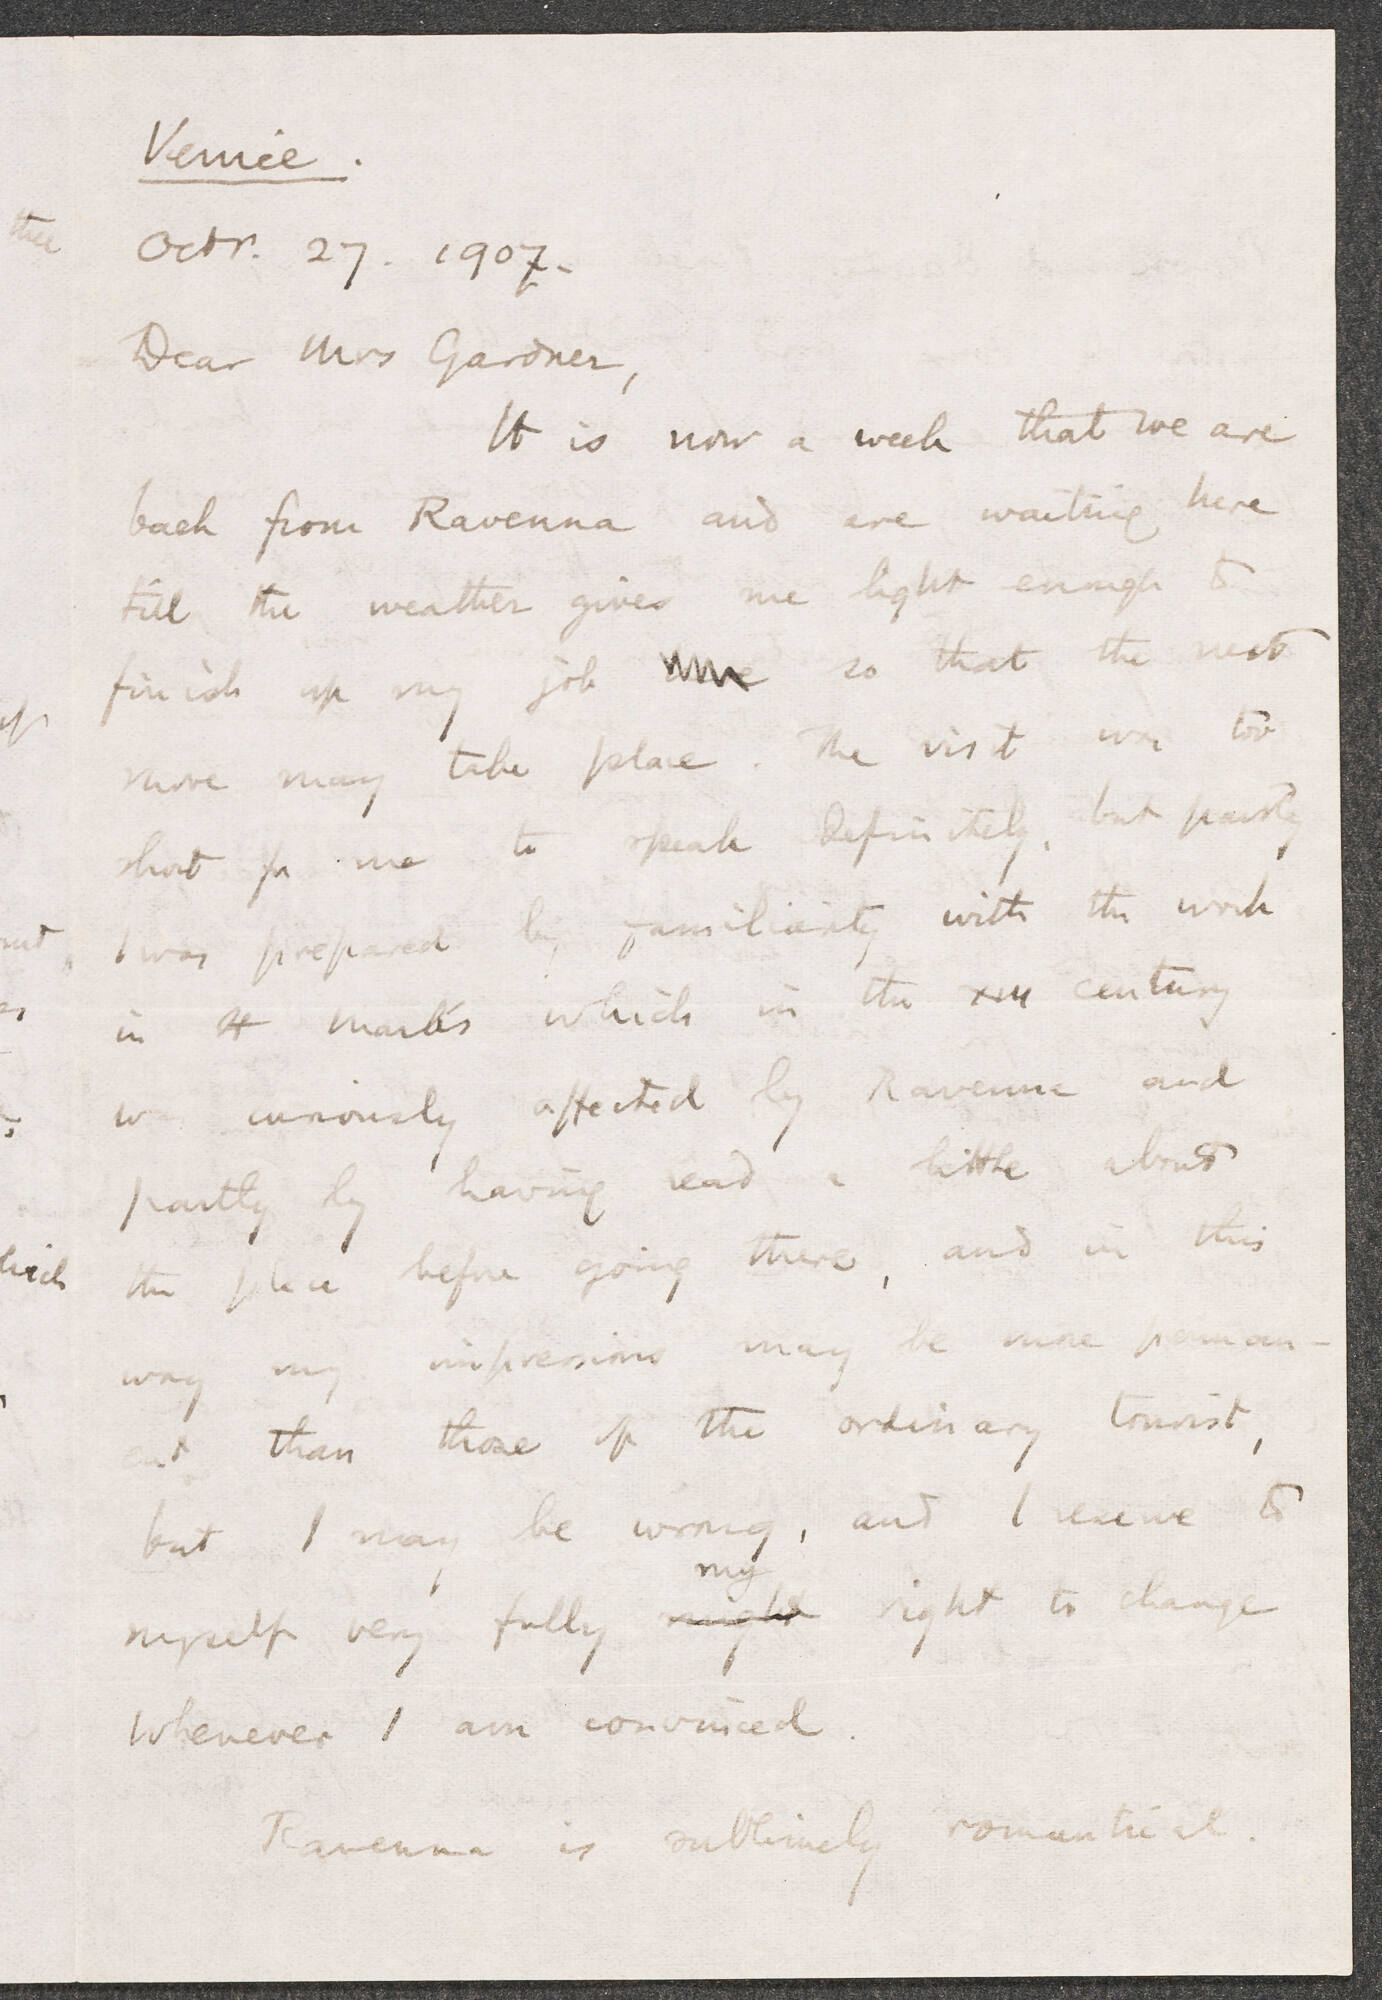 Venice.
Octr. 27. 1907.
Dear Mrs Gardner,
It is now a week that we are
back from Ravenna and are waiting here
till the weather gives me light enough to
finish up my job so that the next
move may take place. The visit was too
short for me to speak definitely, but partly
I was prepared by familiarity with the work
in St Mark's which in the XIII century
was curiously affected by Ravenna and
partly by having read a little about
the place before going there, and in this
way my impressions may be more perman-
ent than those of the ordinary tourist,
but I may be wrong, and I reserve to
my
myself very fully might right to change
whenever I am convinced.
Ravenna is sublimely romantical.